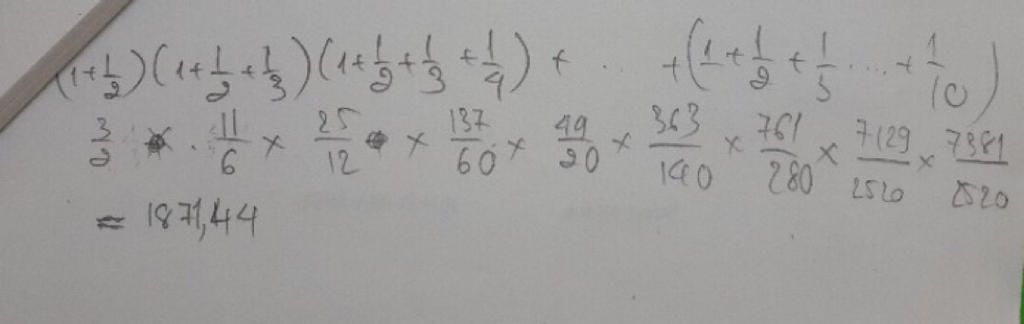 (1+1/2)(1+1/2+1/3)(1+1/2+1/3+1/4)+ ... +(1+1/2+1/3....+1/10)
3/2 × . 11/6 × 25/12 × 137/60 × 49/20 × 363/140 × 761/280 × 7129/2520 × 7381/2520
= 1871,44